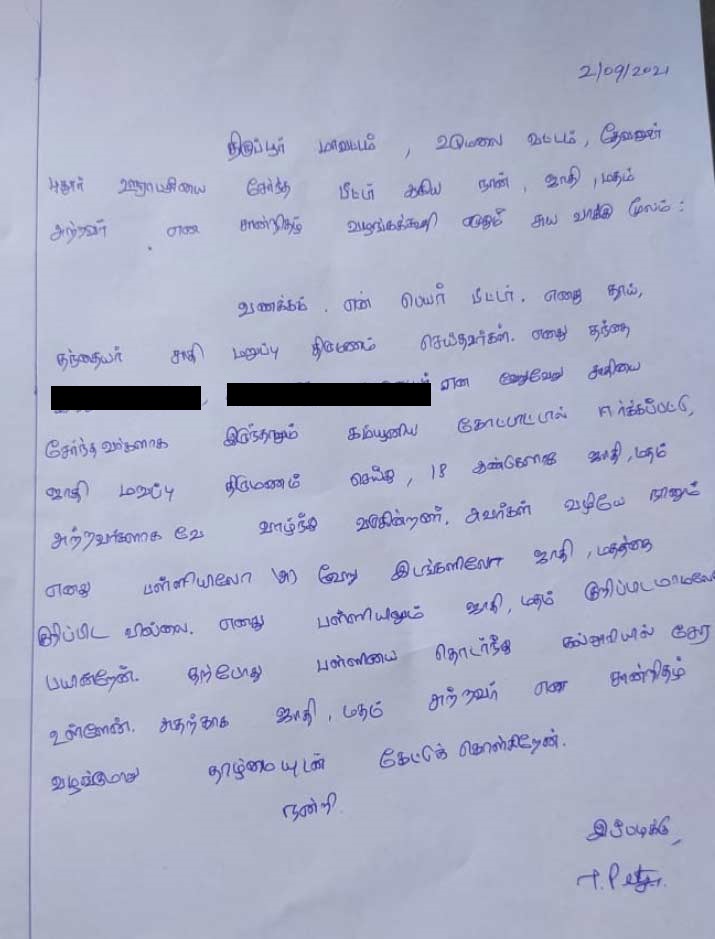 2/09/2021
திருப்பூர் மாவட்டம், உடுமலை வட்டம், தேவனூர்
புதூர் ஊராட்சியை சேர்ந்த பீட்டர் ஆகிய நான், ஜாதி, மதம்
அற்றவர். என சான்றிதழ் வழங்கக்கூறி எழுதும் சுய வாக்கு மூலம்:
வணக்கம். என் பெயர் பீட்டர். எனது தாய்,
தந்தையர் சாதி மறுப்பு திருமணம் செய்தவர்கள். எனது தந்தை
, என வெறுவேறு சாதியை
சேர்ந்தவர்களாக இருந்தாலும் கம்யூனிய கோட்பாட்டால் ஈர்க்கப்பட்டு,
ஜாதி மறுப்பு திருமணம் செய்து, 18 ஆண்களொக ஜாதி, மதம்
அற்றவர்களாக வே வாழ்ந்து வருகின்றனர். அவர்கள் வழியே நானும்
எனது பள்ளியிலோ (அ) வேறு இடங்களிலோ ஜாதி, மதத்தை
குறிப்பிட வில்லை. எனது பள்ளியிலும் ஜாதி, மதம் குறிப்பிடமாமலே
பயின்றேன். தற்போது பள்ளியை தொடர்ந்து கல்லூரியில் சேர
உள்ளேன். அதற்காக ஜாதி, மதம் அற்றவர் என சான்றிதழ்
வழங்குமாறு தாழ்மையுடன் கேட்டுக் கொள்கிறேன்.
நன்றி.
இப்படிக்கு,
T. Peter